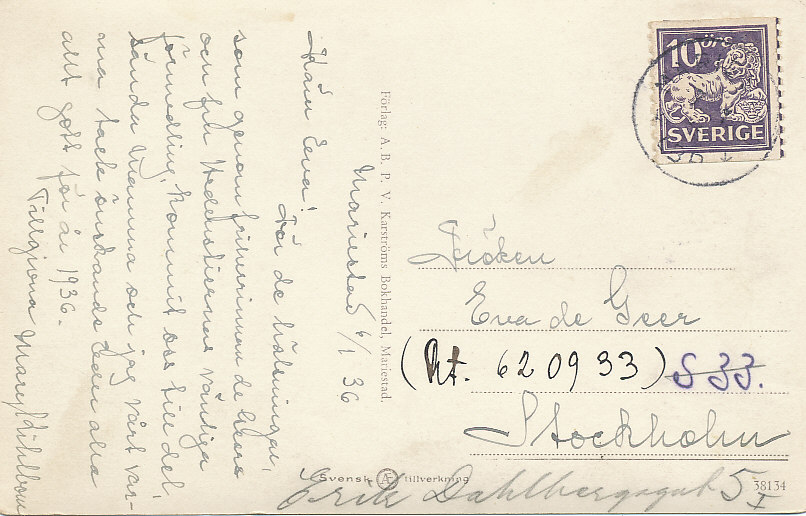 Mariestad 6/1 36
Kära Eva!
För de hälsningar,
som genom friherrinnan de Geers
och fru Hedenstiernas vänliga
förmedling, kommit oss till del
sända Mamma och jag vårt var-
ma tack önskande Eder alla
allt gott för år 1936.
Tillgivna Mary
Förlag: A. B. P. V. Karströms Bokhandel, Mariestad.
10 ÖRE
SVERIGE
Fröken
Eva de Geer
(Rt. 62 09 33) S 33.
Stockholm
Erik Dahlbergsgat 5 I
Svensk Æ tillverkning
38134